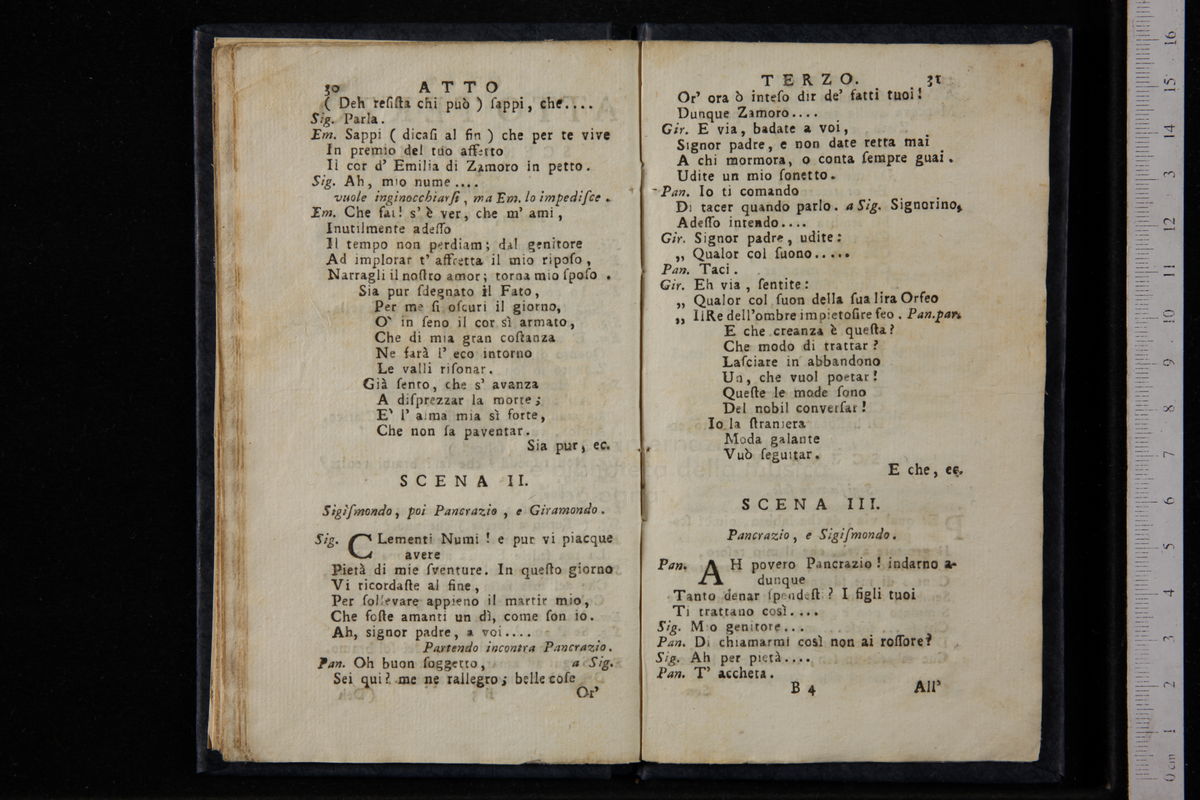 30 ATTO
( Deh reſiſta chi può ) ſappi, che....
Sig. Parla.
Em. Sappi ( dicaſi al fin ) che per te vive
In premio del tuo affetto
Il cor d' Emilia di Zamoro in petto.
Sig. Ah, mio nume....
vuole inginocchiarſi, ma Em. lo impediſce.
Em. Che fai! s' è ver, che m' ami,
Inutilmente adeſſo
Il tempo non perdiam; dal genitore
Ad implorar t' affretta il mio ripoſo,
Narragli il noſtro amor; torna mio ſpoſo.
Sia pur ſdegnato il Fato,
Per me ſi oſcuri il giorno,
O' in ſeno il cor sì armato,
Che di mia gran coſtanza
Ne farà l' eco intorno
Le valli riſonar.
Già ſento, che s' avanza
A diſprezzar la morte;
E' l' alma mia sì forte,
Che non ſa paventar.
Sia pur, ec.
SCENA II.
Sigiſmondo, poi Pancrazio, e Giramondo.
Sig. CLementi Numi! e pur vi piacque
avere
Pietà di mie ſventure. In queſto giorno
Vi ricordaſte al fine,
Per ſollevare appieno il martir mio,
Che foſte amanti un dì, come ſon io.
Ah, signor padre, a voi....
Partendo incontra Pancrazio.
Pan. Oh buon ſoggetto, a Sig.
Sei qui? me ne rallegro; belle coſe
Or'
TERZO. 31
Or' ora ò inteſo dir de' fatti tuoi!
Dunque Zamoro....
Gir. E via, badate a voi,
Signor padre, e non date retta mai
A chi mormora, o conta ſempre guai.
Udite un mio ſonetto.
Pan. Io ti comando
Di tacer quando parlo. a Sig. Signorino,
Adeſſo intendo....
Gir. Signor padre, udite:
„ Qualor col ſuono.....
Pan. Taci.
Gir. Eh via, ſentite:
„ Qualor col ſuon della ſua lira Orfeo
„ Il Re dell'ombre impietoſire feo. Pan. par.
E che creanza è queſta?
Che modo di trattar?
Laſciare in abbandono
Un, che vuol poetar!
Queſte le mode ſono
Del nobil converſar!
Io la ſtraniera
Moda galante
Vuò ſeguitar.
E che, ec.
SCENA III.
Pancrazio, e Sigiſmondo.
Pan. AH povero Pancrazio! indarno a-
dunque
Tanto denar ſpendeſti? I figli tuoi
Ti trattano così....
Sig. Mio genitore...
Pan. Di chiamarmi così non ai roſſore?
Sig. Ah per pietà....
Pan. T' accheta.
B 4 All'